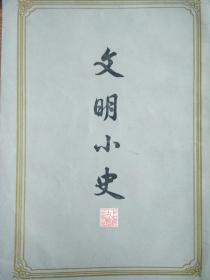 文明小史